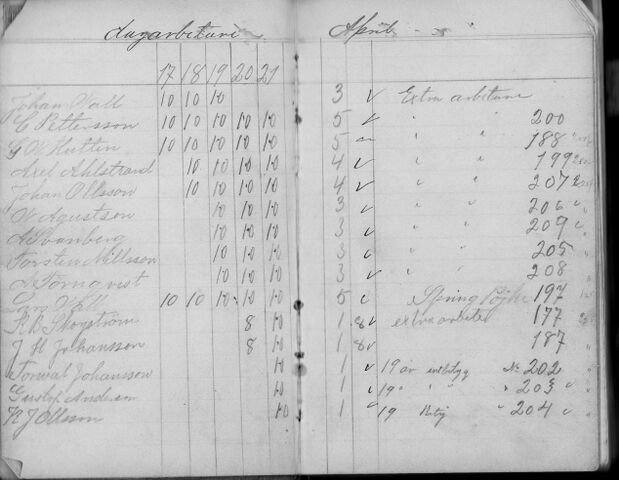 dagarbetare April
17 18 19 20 21
Johan Wall 10 10 10 3 Extra arbetare
C Pettersson 10 10 10 10 10 5 " " 200
G W Hutten 10 10 10 10 10 5 " " 188
Axel Ahlstrand 10 10 10 10 4 " " 199
Johan Ollsson 10 10 10 10 4 " " 207
W Agustson 10 10 10 3 " " 206
A Svanberg 10 10 10 3 " " 209
Torsten Nillsson 10 10 10 3 " " 205
10 10 10 3 " " 208
10 10 10 10 10 5 Spring Pojke 197
R B Skogström 8 10 1 8 extra arbeter 177
J H Johansson 8 10 1 8 187
Torwal Johansson 10 1 19 No 202
Gustof Anderson 10 1 19 " " " 203 "
K J Ollsson 10 1 19 " 204 "